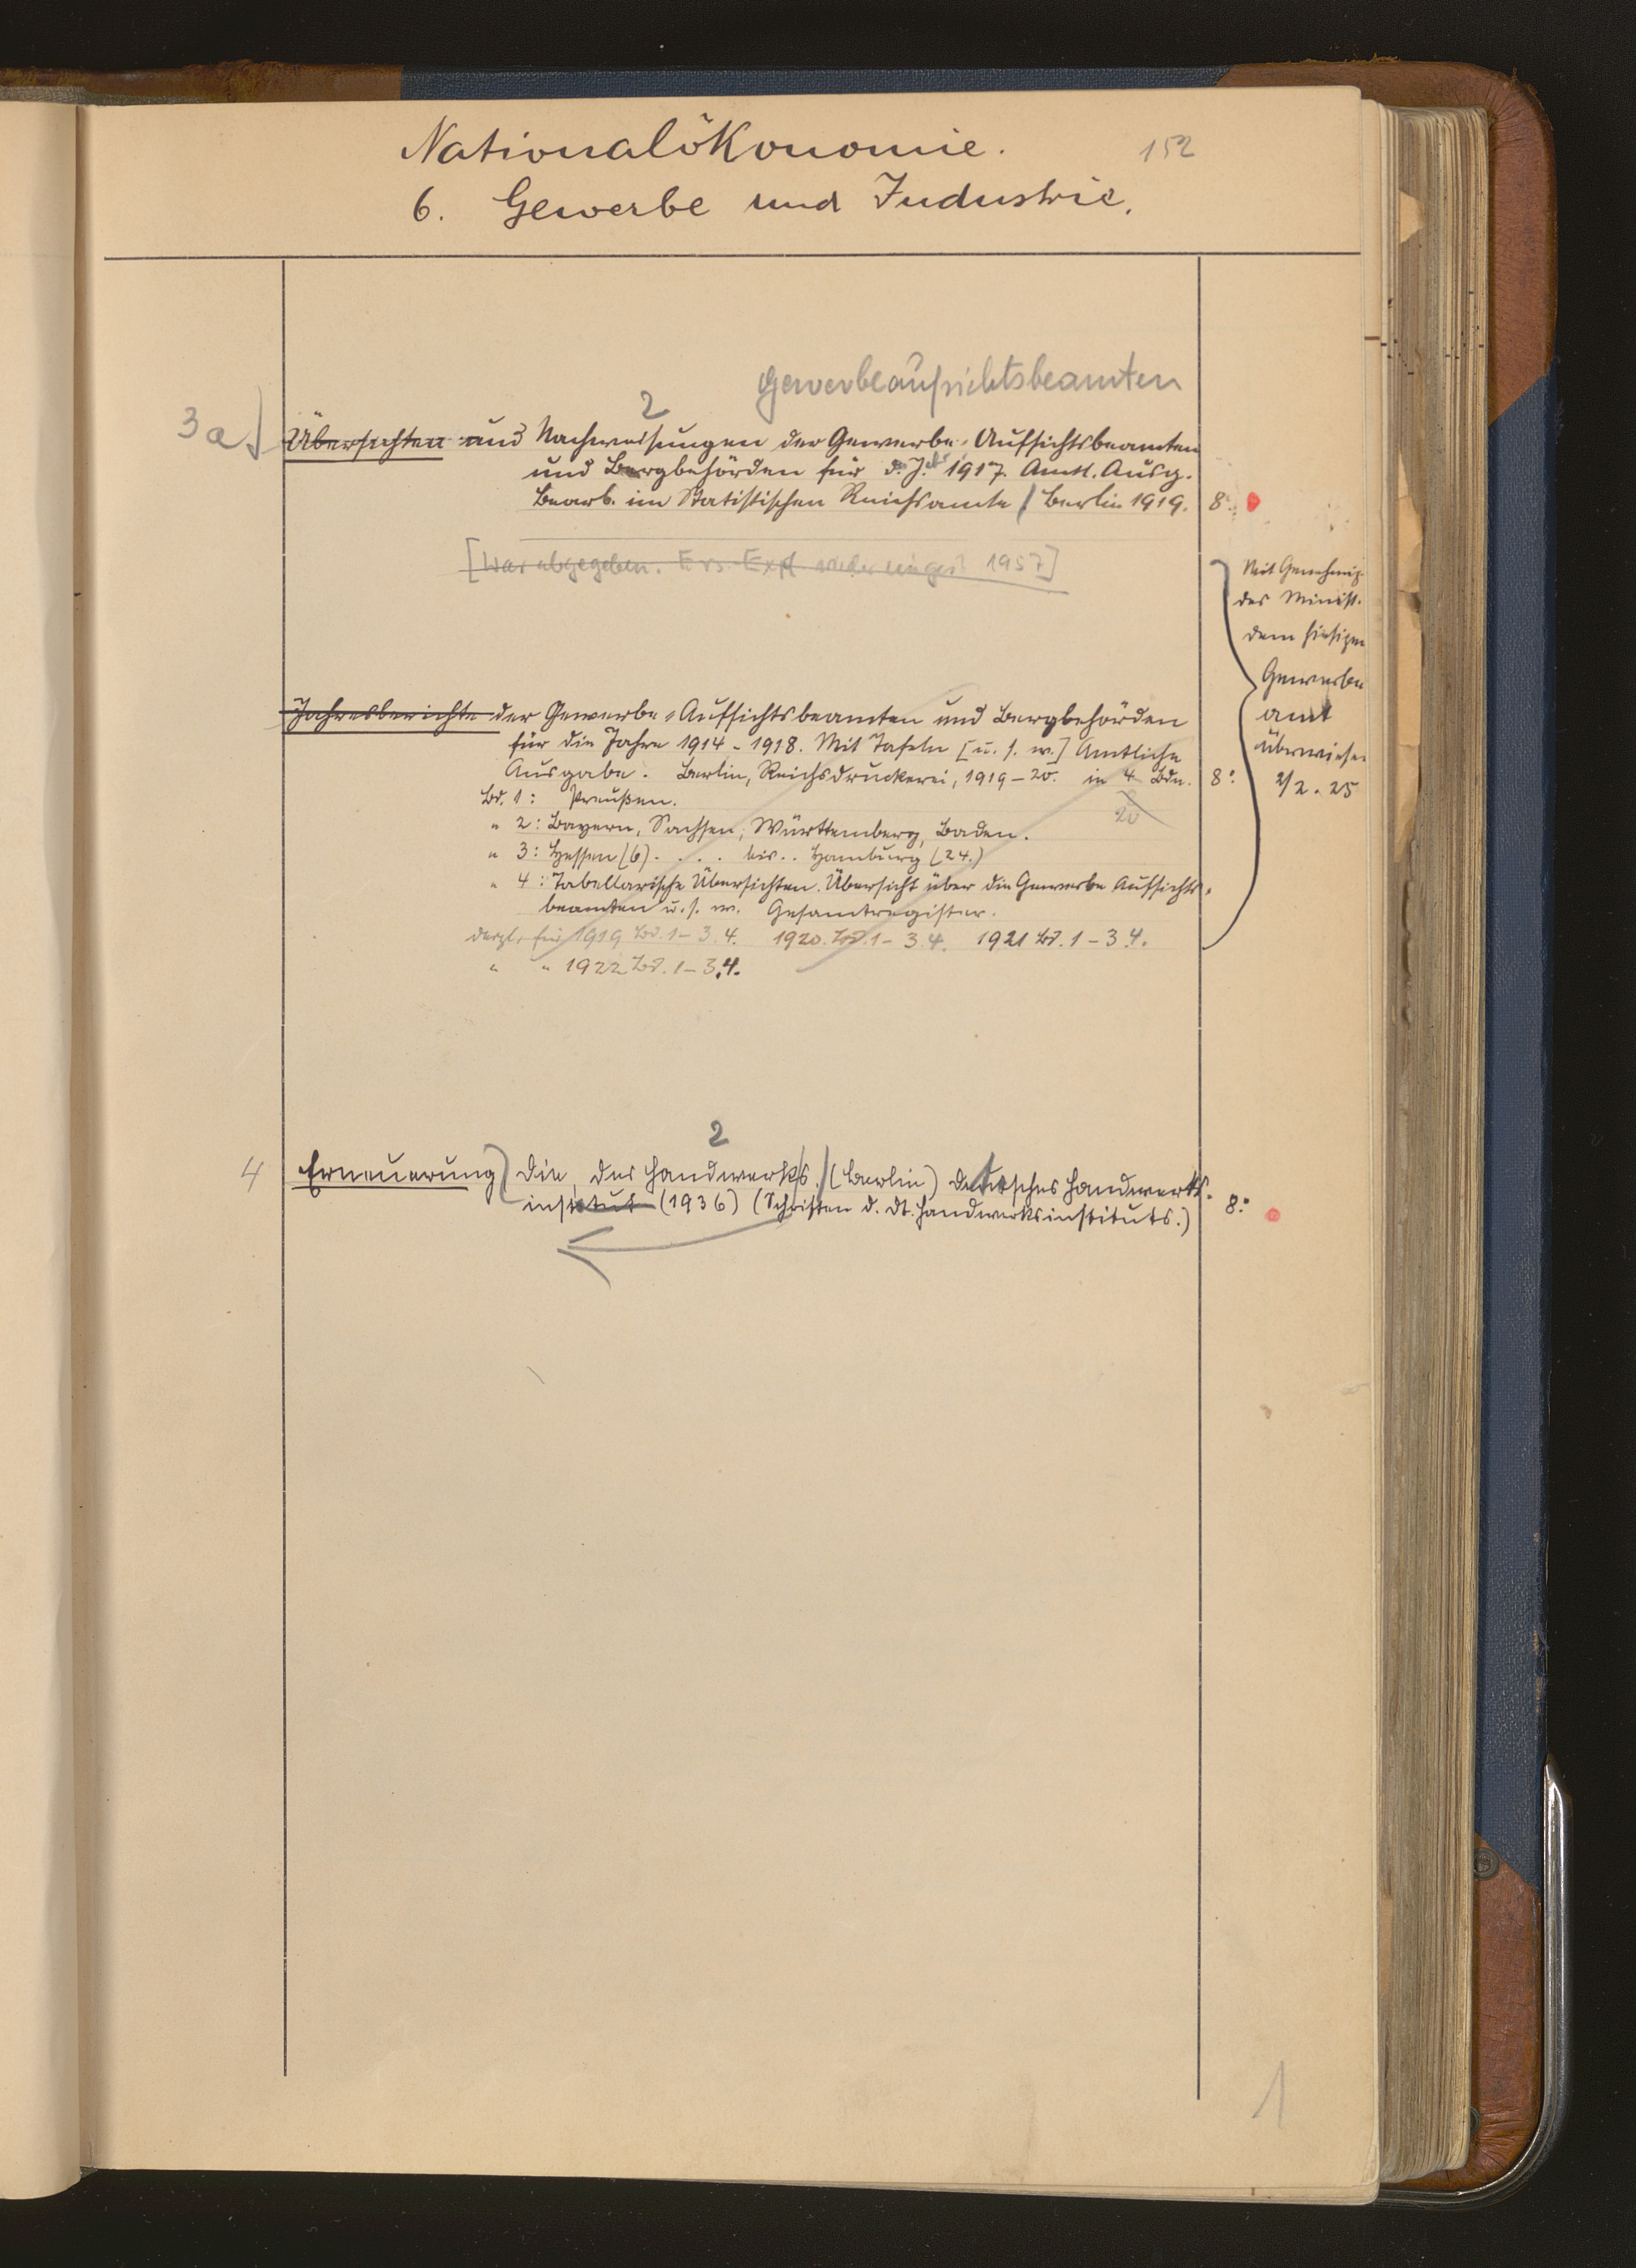 Nationalökonomie.
152
6. Gewerbe und Industrie.
Gewerbeaufsichtsbeamten
2
3a
Übersichten und Nachweisungen der Gewerbe-Aufsichtsbeamten
und Bergbehörden für d. J. 1917. Amtl. Ausg.
Bearb. im Statistischen Reichsamte / Berlin 1919. 8°.
[War abgegeben. Ers.-Expl wieder 1957]
Mit Genehmig.
des Minist.
dem hiesigen
Gewerbe
amt
überwiesen
2/2. 25
Jahresberichte der Gewerbe-Aufsichtsbeamten und Bergbehörden
für die Jahre 1914-1918. Mit Tafeln [u. s. w.] Amtliche
Ausgabe. Berlin, Reichsdruckerei, 1919-20. in 4 Bdn. 8°.
20
Bd. 1: Preußen.
" 2: Bayern, Sachsen, Württemberg, Baden.
" 3: Hessen (6) . . . . bis . . Hamburg (24.)
" 4: Tabellarische Übersichten. Übersicht über die Gewerbe Aufsichts-
beamten u. s. w. Gesamtregister.
dergl. für 1919 Bd. 1-3.4. 1920. Bd. 1-3.4. 1921 Bd. 1-3.4.
" " 1922 Bd. 1-3.4.
2
4
Erneuerung, die, des Handwerks. (Berlin) Deutsches Handwerks-
institut (1936) (Schriften d. dt. Handwerksinstituts.) 8°.
1